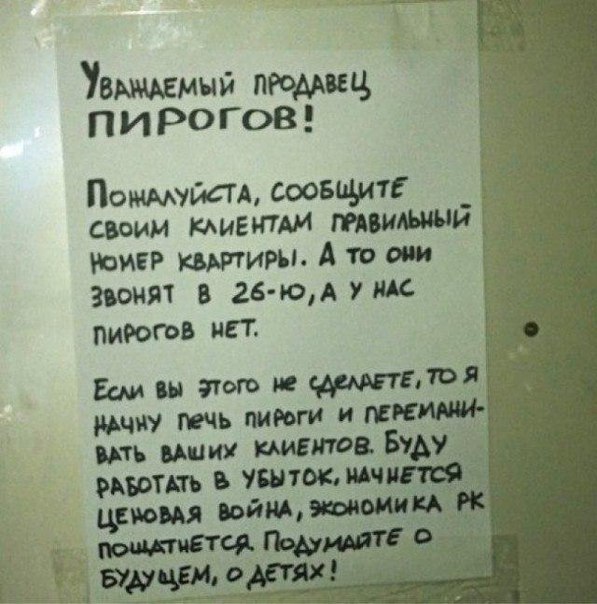 Уважаемый продавец
пирогов!
Пожалуйста, сообщите
своим клиентам правильный
номер квартиры. А то они
звонят в 26-ю, а у нас
пирогов нет.
Если вы этого не сделаете, то я
начну печь пироги и перемани-
вать ваших клиентов. Буду
работать в убыток, начнется
ценовая война, экономика РК
пошатнется. Подумайте о
будущем, о детях!